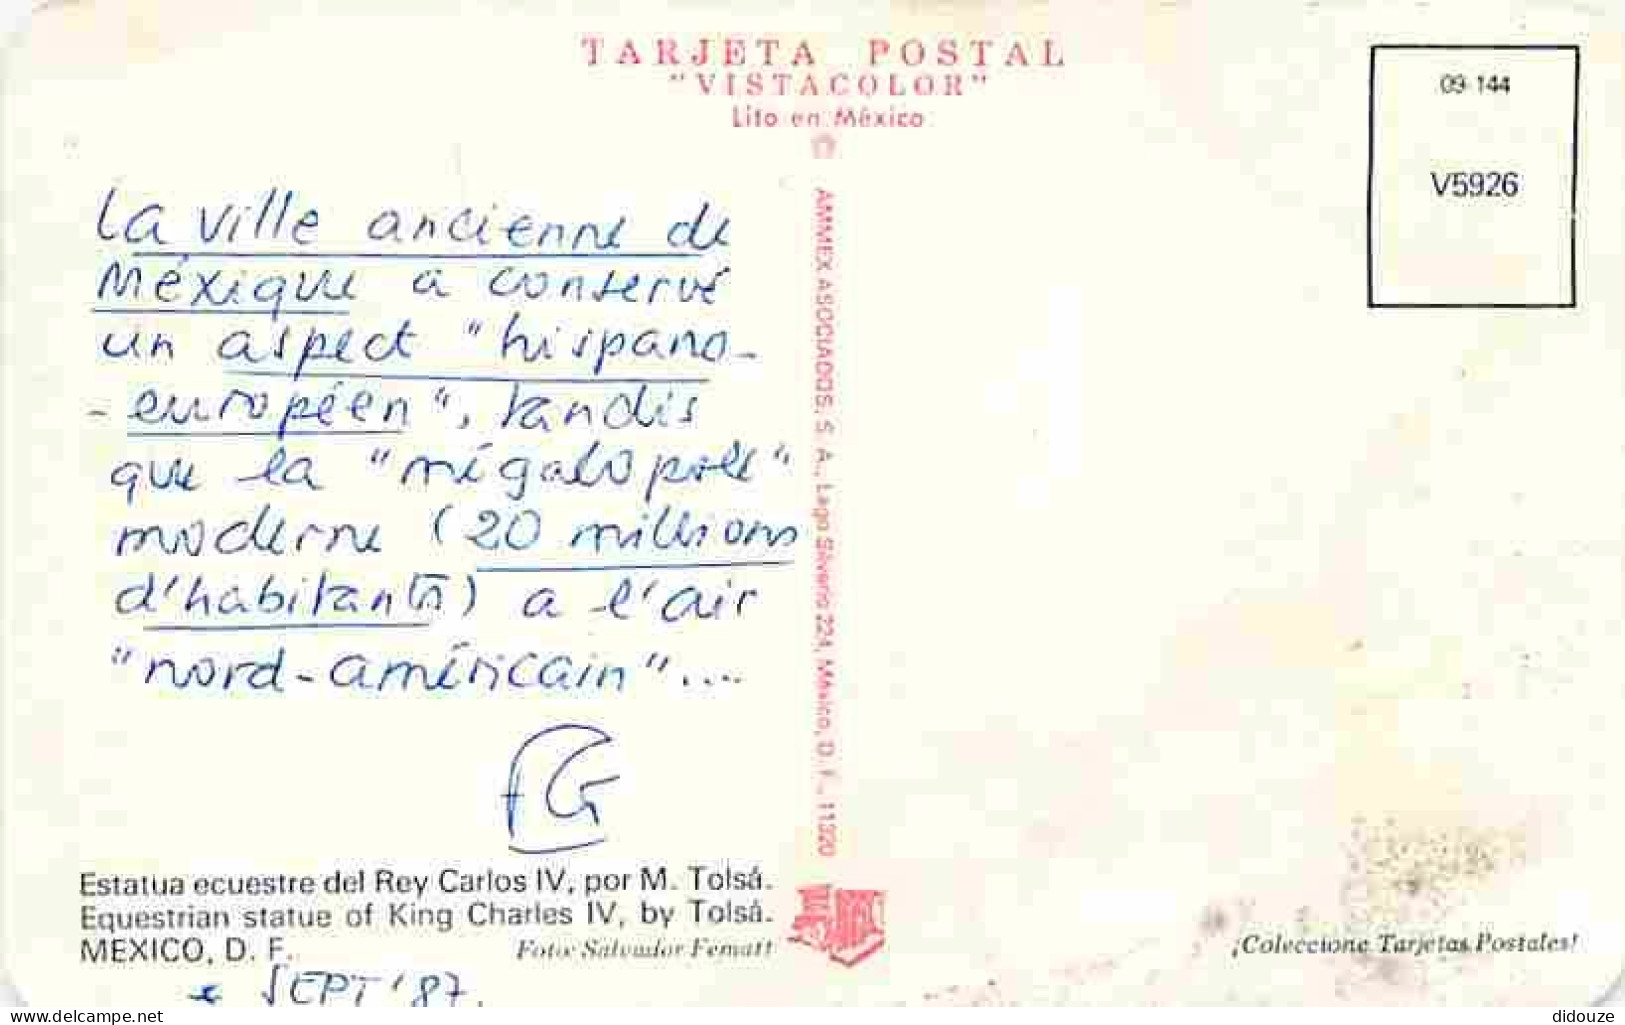 TARJETA POSTAL
"VISTACOLOR"
Lito en México
09-144
V5926
La ville ancienne de
Méxique a conservé
un aspect "hispano-
-européen", tandis
que la "mégalopole"
moderne (20 millions
d'habitants) a l'air
"nord-américain"....
FG
AMMEX ASOCIADOS, S. A., Lago Silverio 224, México, D. F., 11320
Estatua ecuestre del Rey Carlos IV, por M. Tolsá.
Equestrian statue of King Charles IV, by Tolsá.
MEXICO, D. F.
Foto: Salvador Fematt
SEPT '87.
¡Coleccione Tarjetas Postales!
https://www.delcampe.net
didouze